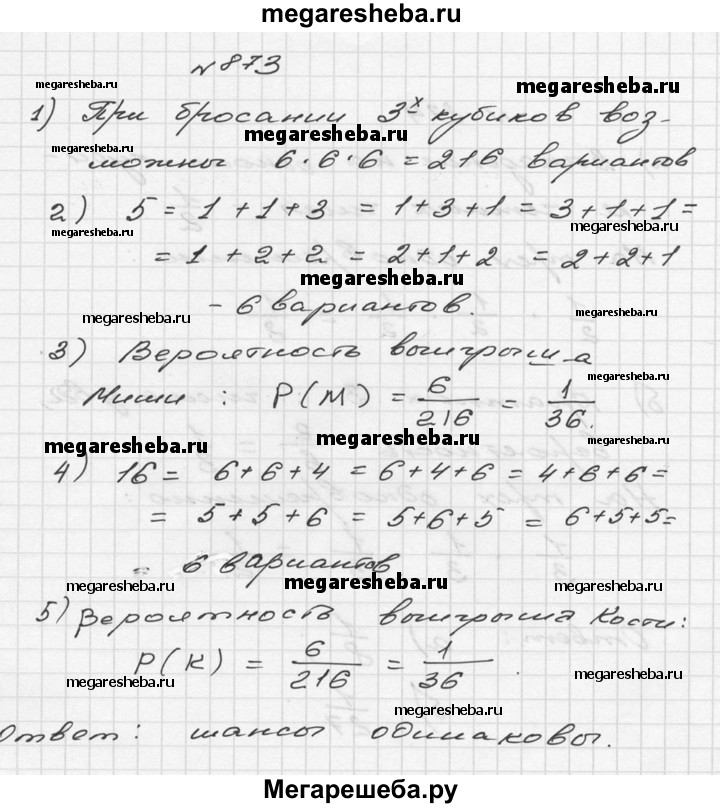 megaresheba.ru
№873
megaresheba.ru megaresheba.ru
1) При бросании 3-х кубиков воз-
megaresheba.ru megaresheba.ru
можны 6·6·6 = 216 вариантов
megaresheba.ru
2) 5 = 1+1+3 = 1+3+1 = 3+1+1 =
megaresheba.ru megaresheba.ru
= 1+2+2 = 2+1+2 = 2+2+1
megaresheba.ru
- 6 вариантов.
megaresheba.ru megaresheba.ru
3) Вероятность выигрыша
Миши: P(M) = 6/216 = 1/36.
megaresheba.ru
megaresheba.ru megaresheba.ru megaresheba.ru
4) 16 = 6+6+4 = 6+4+6 = 4+6+6 =
= 5+5+6 = 5+6+5 = 6+5+5 =
= 6 вариантов
megaresheba.ru megaresheba.ru megaresheba.ru
5) Вероятность выигрыша Кости:
P(K) = 6/216 = 1/36.
megaresheba.ru megaresheba.ru
megaresheba.ru megaresheba.ru
Ответ: шансы одинаковы.
Мегарешеба.ру